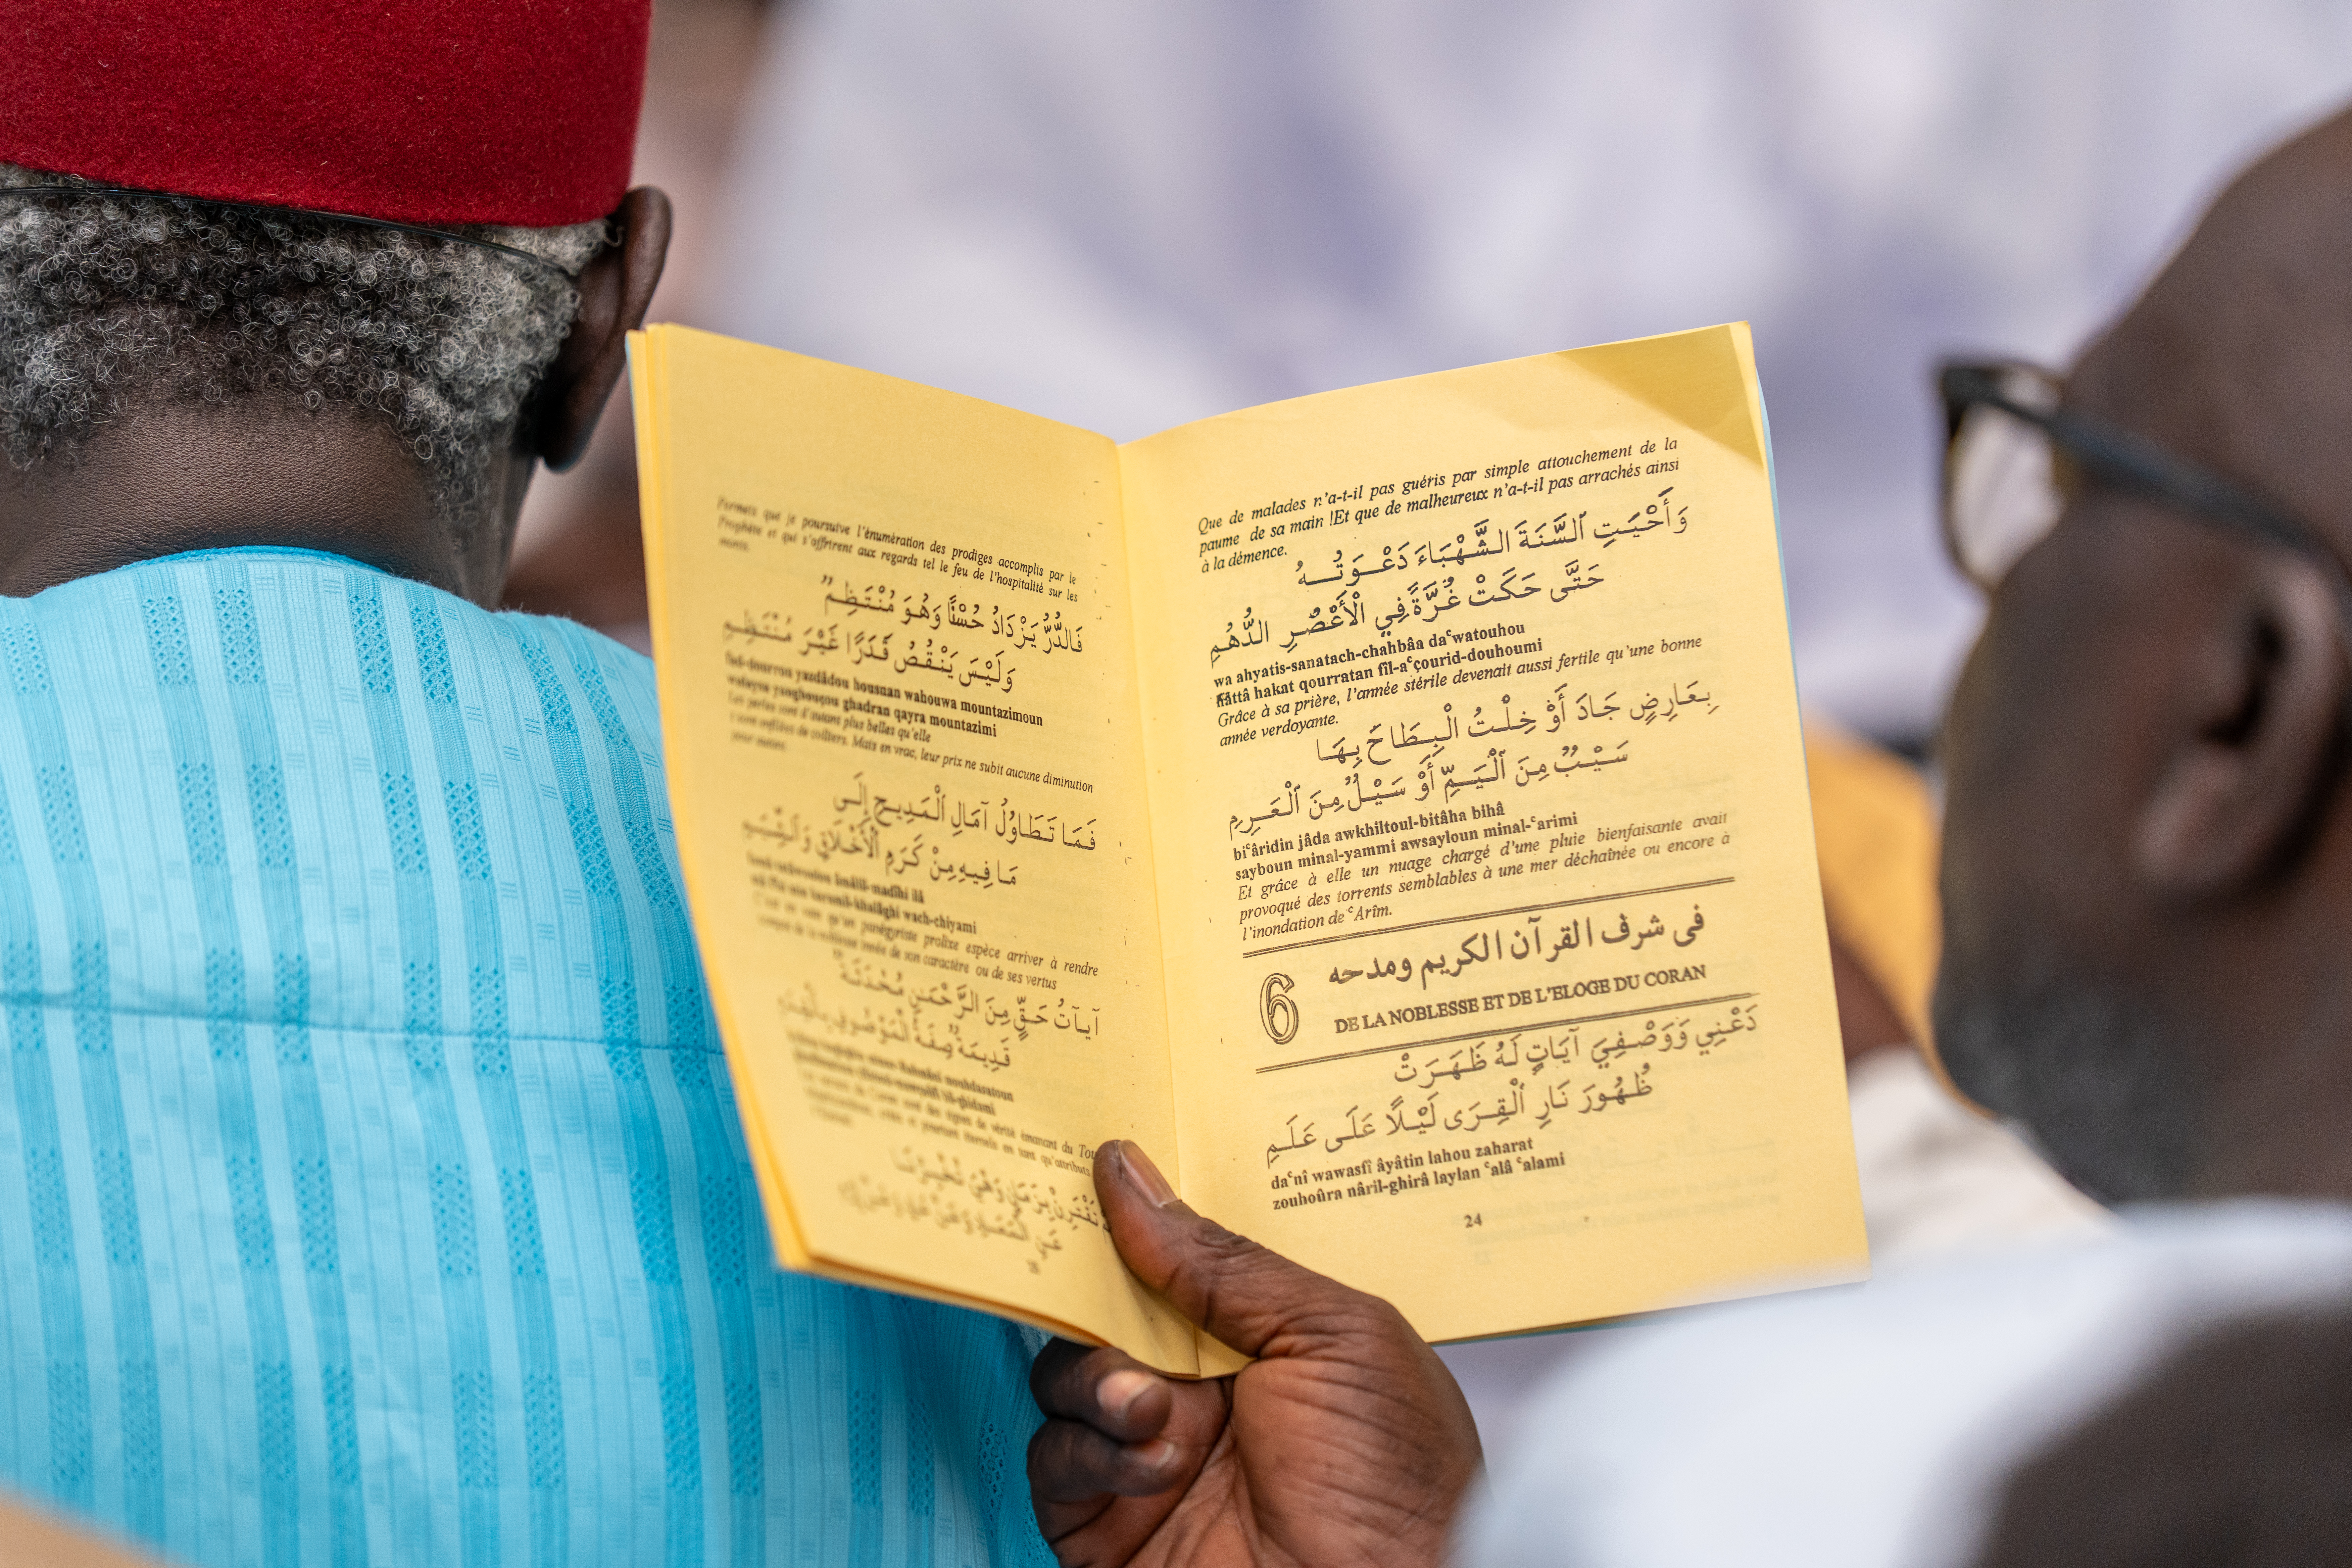 Que de malades n'a-t-il pas guéris par simple attouchement de la
paume de sa main !Et que de malheureux n'a-t-il pas arrachés ainsi
à la démence.
وَأَحْيَتِ ٱلسَّنَةَ الشَّهْبَاءَ دَعْـوَتُـــهُ
حَتَّى حَكَتْ غُرَّةً فِي الْأَعْصُرِ الدُّهُمِ
wa ahyatis-sanatach-chahbâa daʿwatouhou
hâttâ hakat qourratan fil-aʿçourid-douhoumi
Grâce à sa prière, l'année stérile devenait aussi fertile qu'une bonne
année verdoyante.
بِعَارِضٍ جَادَ أَوْ خِلْتُ الْبِطَاحَ بِهَا
سَيْبٌ مِنَ ٱلْيَمِّ أَوْ سَيْلٌ مِنَ ٱلْعَرِمِ
biʿâridin jâda awkhiltoul-bitâha bihâ
sayboun minal-yammi awsayloun minal-ʿarimi
Et grâce à elle un nuage chargé d'une pluie bienfaisante avait
provoqué des torrents semblables à une mer déchaînée ou encore à
l'inondation de ʿArîm.
فى شرف القرآن الكريم ومدحه
6
DE LA NOBLESSE ET DE L'ELOGE DU CORAN
دَعْنِي وَوَصْفِيَ آيَاتٍ لَهُ ظَهَرَتْ
ظُهُورَ نَارِ ٱلْقِرَى لَيْلًا عَلَى عَلَمِ
daʿnî wawasfî âyâtin lahou zaharat
zouhoûra nâril-ghirâ laylan ʿalâ ʿalami
24
Permets que je poursutve l'énumération des prodiges accomplis par le
Prophète et qui s'offrirent aux regards tel le feu de l'hospitalité sur les
monts.
فَالدُّرُّ يَزْدَادُ حُسْنًا وَهُوَ مُنْتَظِمٌ
وَلَيْسَ يَنْقُصُ قَدَرًا غَيْرَ مُنْتَظِمِ
fad-dourrou yazdâdou housnan wahouwa mountazimoun
walaysa yanghouçou ghadran qayra mountazimi
Les perles sont d'autant plus belles qu'elle
enfilées de colliers. Mais en vrac, leur prix ne subit aucune diminution
pour autant.
فَمَا تَطَاوُلُ آمَالِ ٱلْمَدِيحِ إِلَى
مَا فِيهِ مِنْ كَرَمِ الْأَخْلَاقِ وَالشِّيَمِ
famâ tatâwoulou âmâlil-madîhi ilâ
mâ fîhi min karamil-khalâghi wach-chiyami
C'est en vain qu'un panégyriste prolixe espèce arriver à rendre
compte de la noblesse innée de son caractère ou de ses vertus
آيَاتُ حَقٍّ مِنَ الرَّحْمَنِ مُحْدَثَةٌ
قَدِيمَةٌ صِفَةُ الْمَوْصُوفِ بِالْقِدَمِ
vérité émanant du